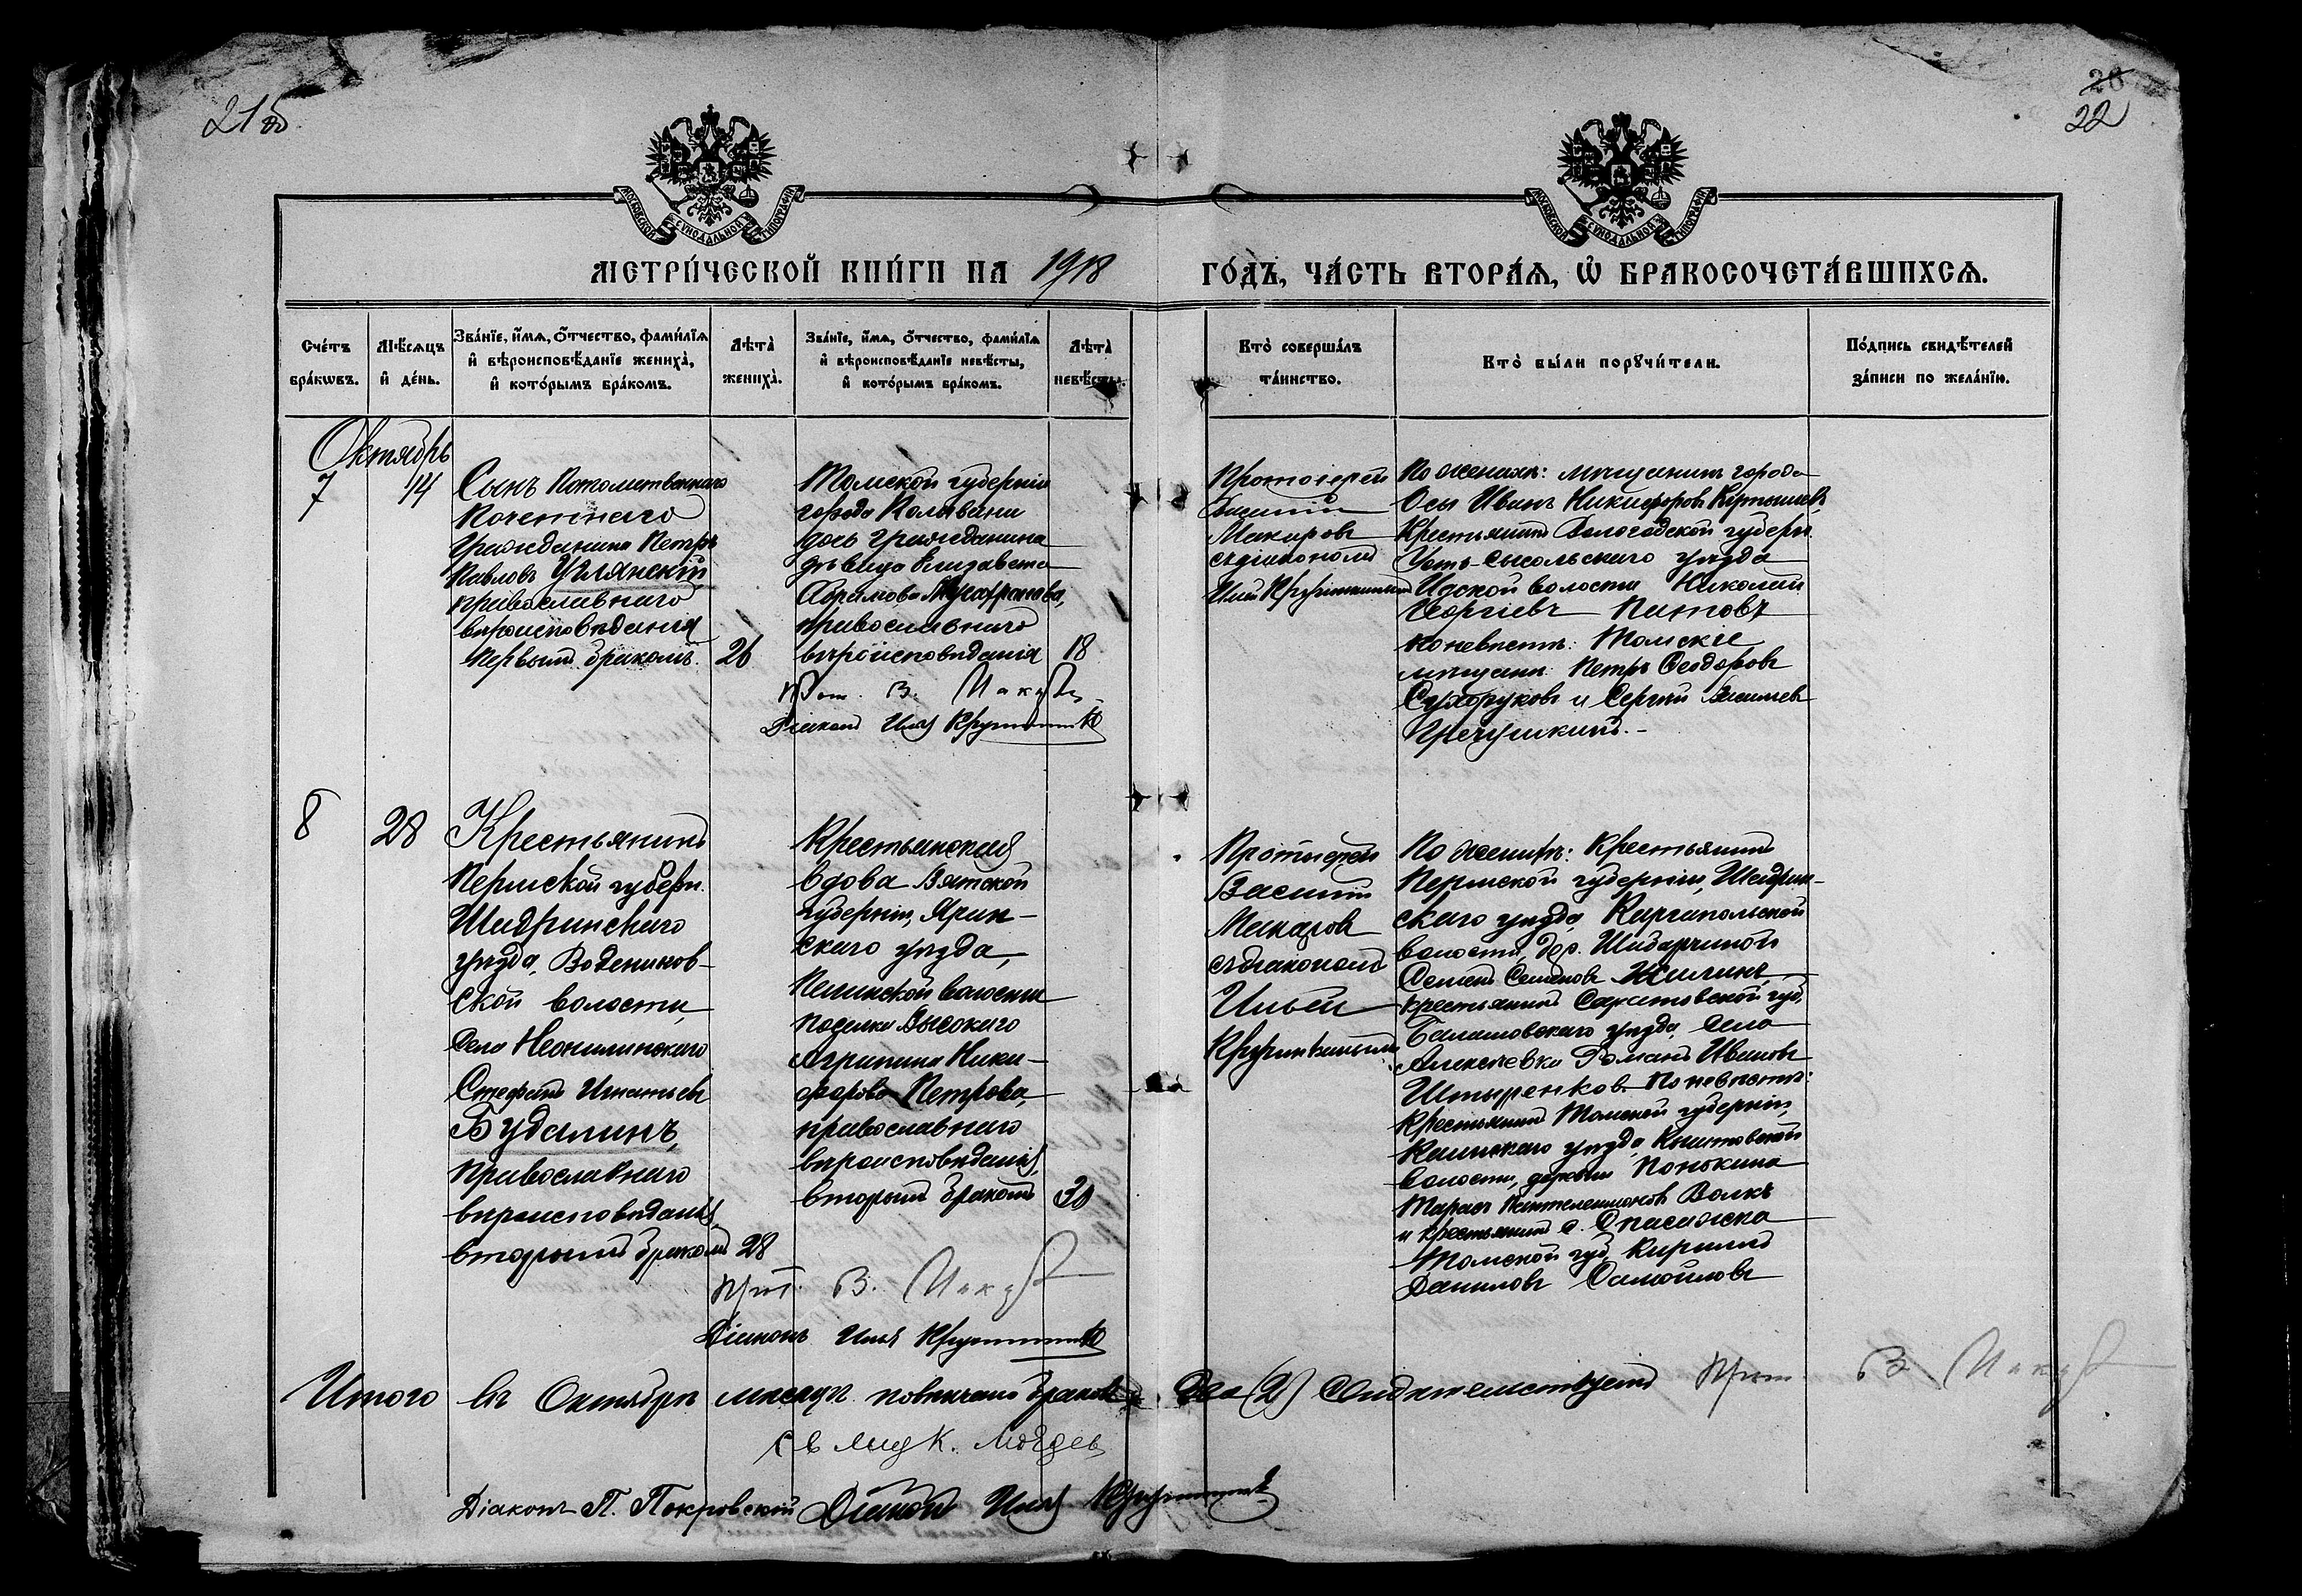 21 об.
28
22
МОСКОВСКОЙ СѴНОДАЛЬНОЙ ТИПОГРАФІИ
МОСКОВСКОЙ СѴНОДАЛЬНОЙ ТИПОГРАФІИ
МЕТРИ́ЧЕСКОЙ КНИ́ГИ НА 1918 ГО́ДЪ, ЧА́СТЬ ВТОРА́Ѧ, Ѡ҆ БРАКОСОЧЕТА́ВШИХСѦ.
Сче́тъ
бра́кѡвъ.
Мѣ́сѧцъ
и҆ де́нь.
Зва́нїе, и҆́мѧ, ѻ҆́тчество, фами́лїѧ
и҆ вѣроисповѣ́данїе жениха̀,
и҆ кото́рымъ бра́комъ.
Лѣта̀
жениха̀.
Зва́нїе, и҆́мѧ, ѻ҆́тчество, фами́лїѧ
и҆ вѣроисповѣ́данїе невѣ́сты,
и҆ кото́рымъ бра́комъ.
Лѣта̀
невѣ́сты.
Кто̀ соверша́лъ
та́инство.
Кто̀ бы́ли порꙋчи́тели.
По́дпись свидѣ́телей
за́писи по жела́нїю.
Октябрь
7
14
Сынъ Потомственнаго
Почетнаго
Гражданина Петръ
Павловъ Углянскій,
православнаго
вѣроисповѣданія
первымъ бракомъ.
26
Томской губерніи
города Колывани
дочь гражданина
дѣвица Елизавета
Абрамова
православнаго
вѣроисповѣданія
18
Прот. В. Макаровъ
Діаконъ Илія
Протоіерей
Василій
Макаровъ
съ діакономъ
Иліей
По женихѣ: мѣщанинъ города
Осы Иванъ Никифоровъ
Крестьянинъ Вологодской губерн.
Усть-Сысольскаго уѣзда
волости Николай
Георгіевъ Патовъ
по невѣстѣ: Томскіе
мѣщане Петръ Феодоровъ
Сухоруковъ и Сергѣй Васильевъ
8
28
Крестьянинъ
Пермской губерн.
Шадринскаго
уѣзда, Водеников-
ской волости,
Села Неонилинскаго
Стефанъ Игнатьевъ
Будалинъ,
православнаго
вѣроисповѣданія,
вторымъ бракомъ
28
Крестьянская
вдова Вятской
губерніи, Яран-
скаго уѣзда,
волости
поселка Высокаго
Агрипина Ники-
форова Петрова,
православнаго
вѣроисповѣданія,
вторымъ бракомъ
30
Прот. В. Макаровъ
Діаконъ Илія
Протоіерей
Василій
Макаровъ
съ діакономъ
Ильей
По женихѣ: Крестьянинъ
Пермской губерніи, Шадрин-
скаго уѣзда, Каргапольской
волости, дер.
Семенъ Семеновъ Жилинъ,
крестьянинъ Саратовской губ.
Балашовскаго уѣзда, села
Алексѣевки Романъ Ивановъ
Штыренковъ. По невѣстѣ:
Крестьянинъ Томской губерніи,
Каинскаго уѣзда, Кыштовской
волости, деревни Понькина
Тарасъ Пантелеимоновъ Волкъ
и крестьянинъ с. Спасажска
Томской губ. Кириллъ
Даниловъ Самойловъ
Итого въ Октябрѣ мѣсяцѣ повѣнчано браковъ два (2) Свидѣтельствуютъ Прот. В. Макаровъ
Діаконъ П. Покровскій Діаконъ Илія